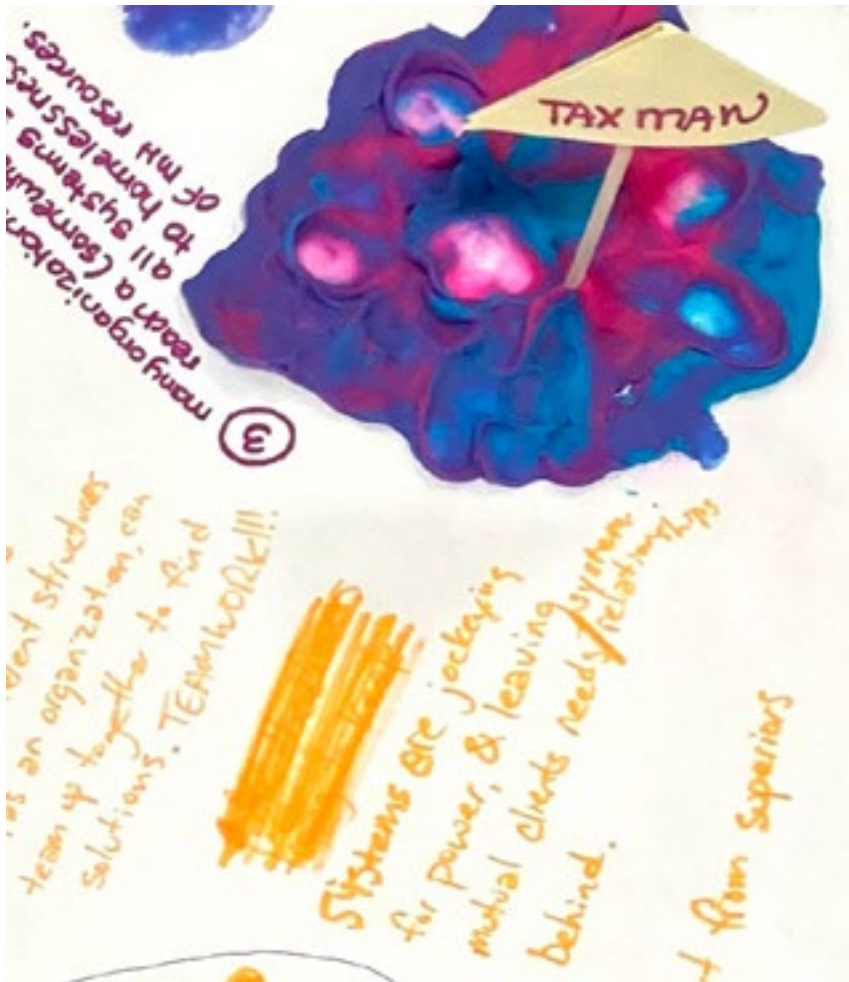 TAX MAN
③
many organization
reach a (somewh
all systems
to homelessness
of MH resources.
structures
as an organization, can
team up together to find
solutions. TEAMWORK!!!
Systems are jockeying
for power, & leaving system
mutual clients needs/relationships
behind.
from superiors